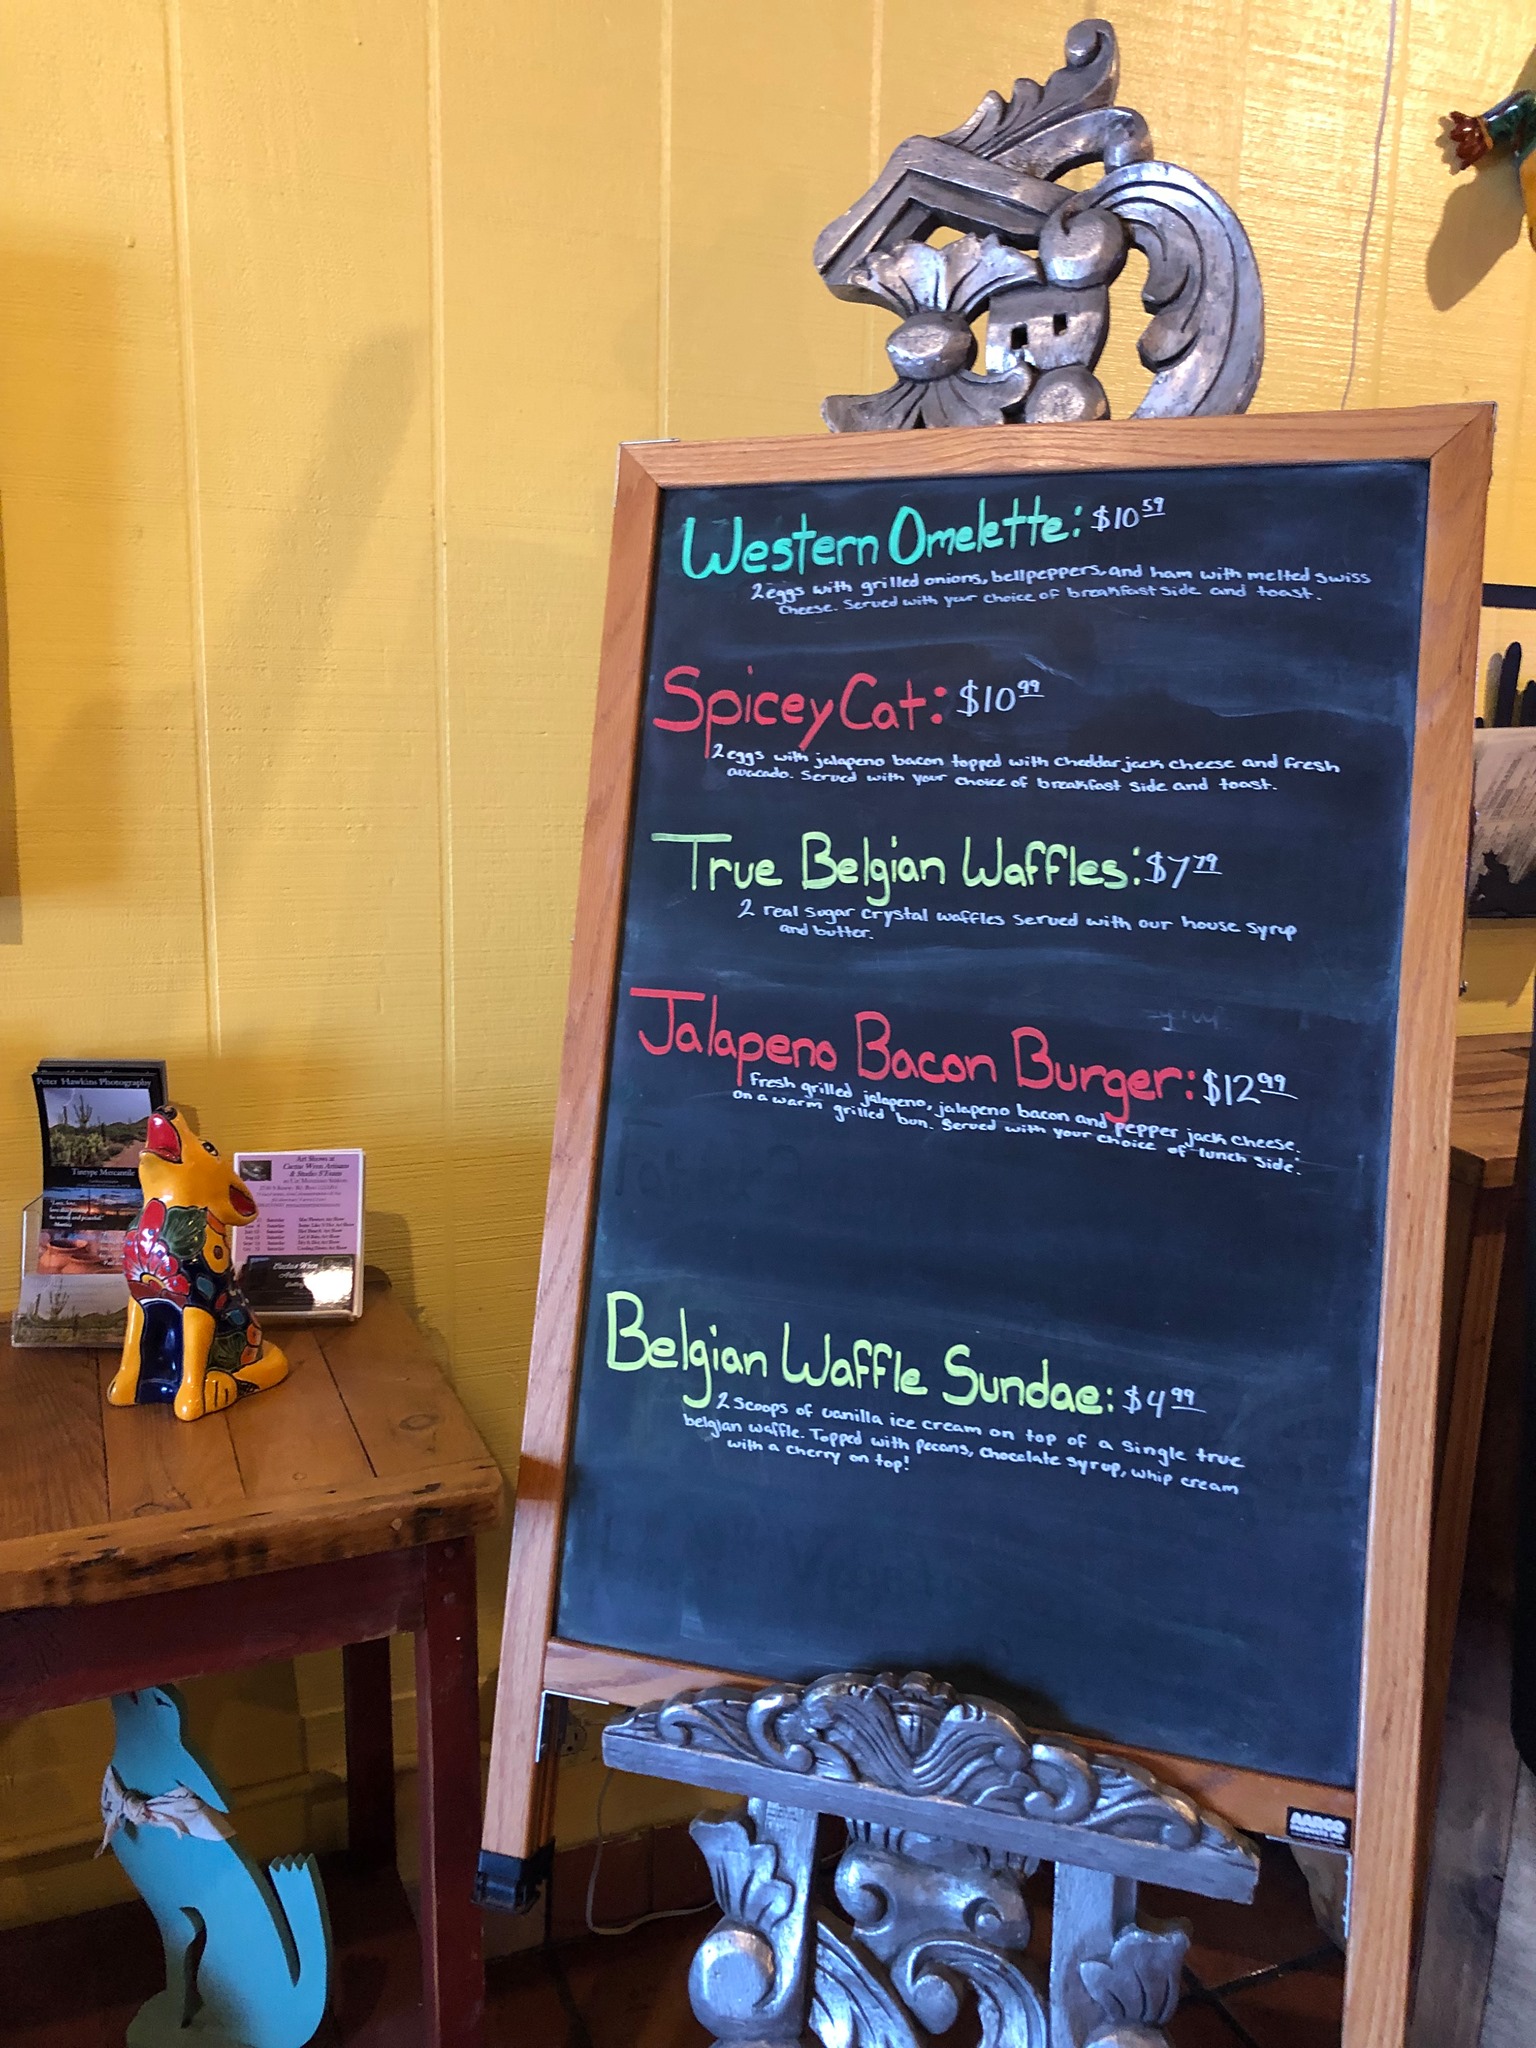 Western Omelette: $10 59
2 eggs with grilled onions, bellpeppers, and ham with melted swiss
Cheese. Served with your choice of breakfast side and toast.
Spicey Cat: $10 99
2 eggs with jalapeno bacon topped with Cheddar jack cheese and fresh
avacado. Served with your choice of breakfast side and toast.
True Belgian Waffles: $7 79
2 real sugar crystal waffles served with our house syrup
and butter.
Jalapeno Bacon Burger: $12 99
Fresh grilled jalapeno, jalapeno bacon and pepper jack cheese.
on a warm grilled bun. Served with your choice of lunch side.
Belgian Waffle Sundae: $4 99
2 Scoops of vanilla ice cream on top of a single true
belgian waffle. Topped with pecans, chocolate syrup, whip cream
with a cherry on top!
AARCO
Peter Hawkins Photography
Tintype Mercantile
Art Shows at
Cactus Wren Artisans